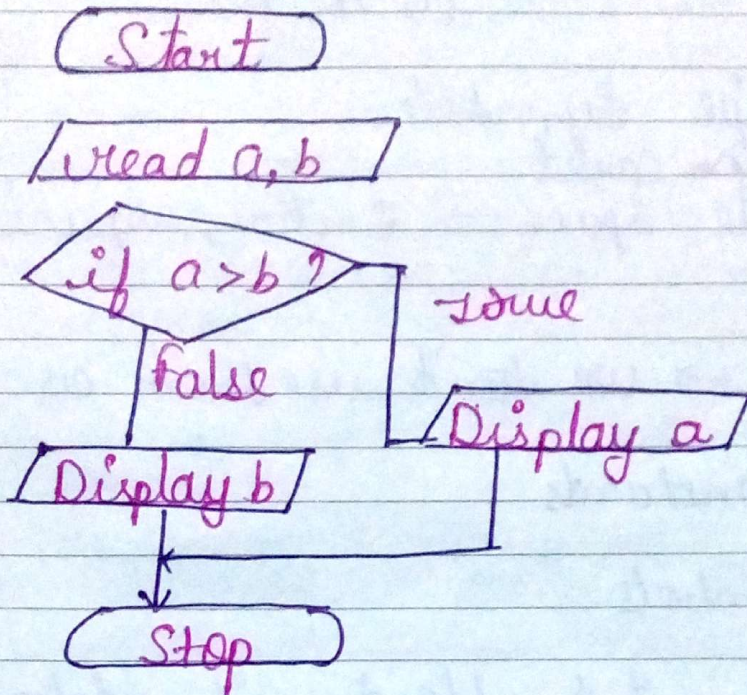 Start
read a, b
if a > b ?
True
False
Display a
Display b
Stop